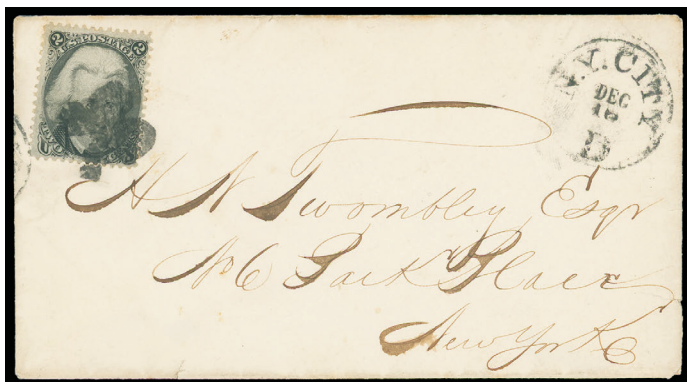 2 U.S. POSTAGE 2
N.Y. CITY
DEC
D
H N Twombley, Esqr
No 6 Park Place
New York